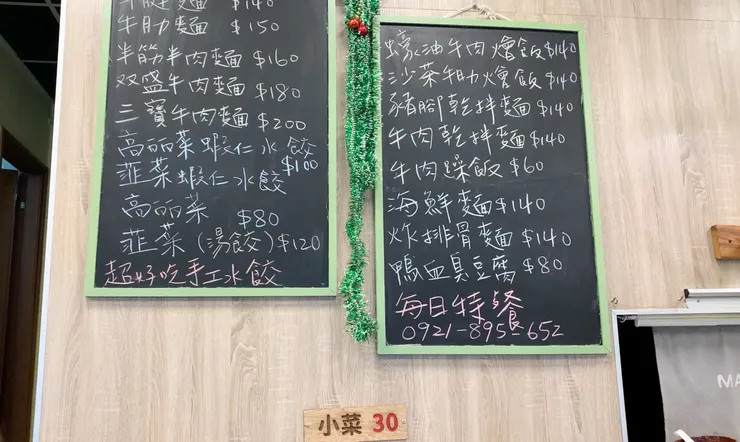 牛腱麵 $140
牛肋麵 $150
半筋半肉麵 $160
双盛牛肉麵 $180
三寶牛肉麵 $200
高丽菜蝦仁水餃
韮菜蝦仁水餃 $100
高丽菜 $80
韮菜(湯餃) $120
超好吃手工水餃
蠔油牛肉燴飯 $140
沙茶牛肋燴飯 $140
豬腳乾拌麵 $140
牛肉乾拌麵 $140
牛肉燥飯 $60
海鮮麵 $140
炸排骨麵 $140
鴨血臭豆腐 $80
每日特餐
0921-895-652
小菜 30
MA